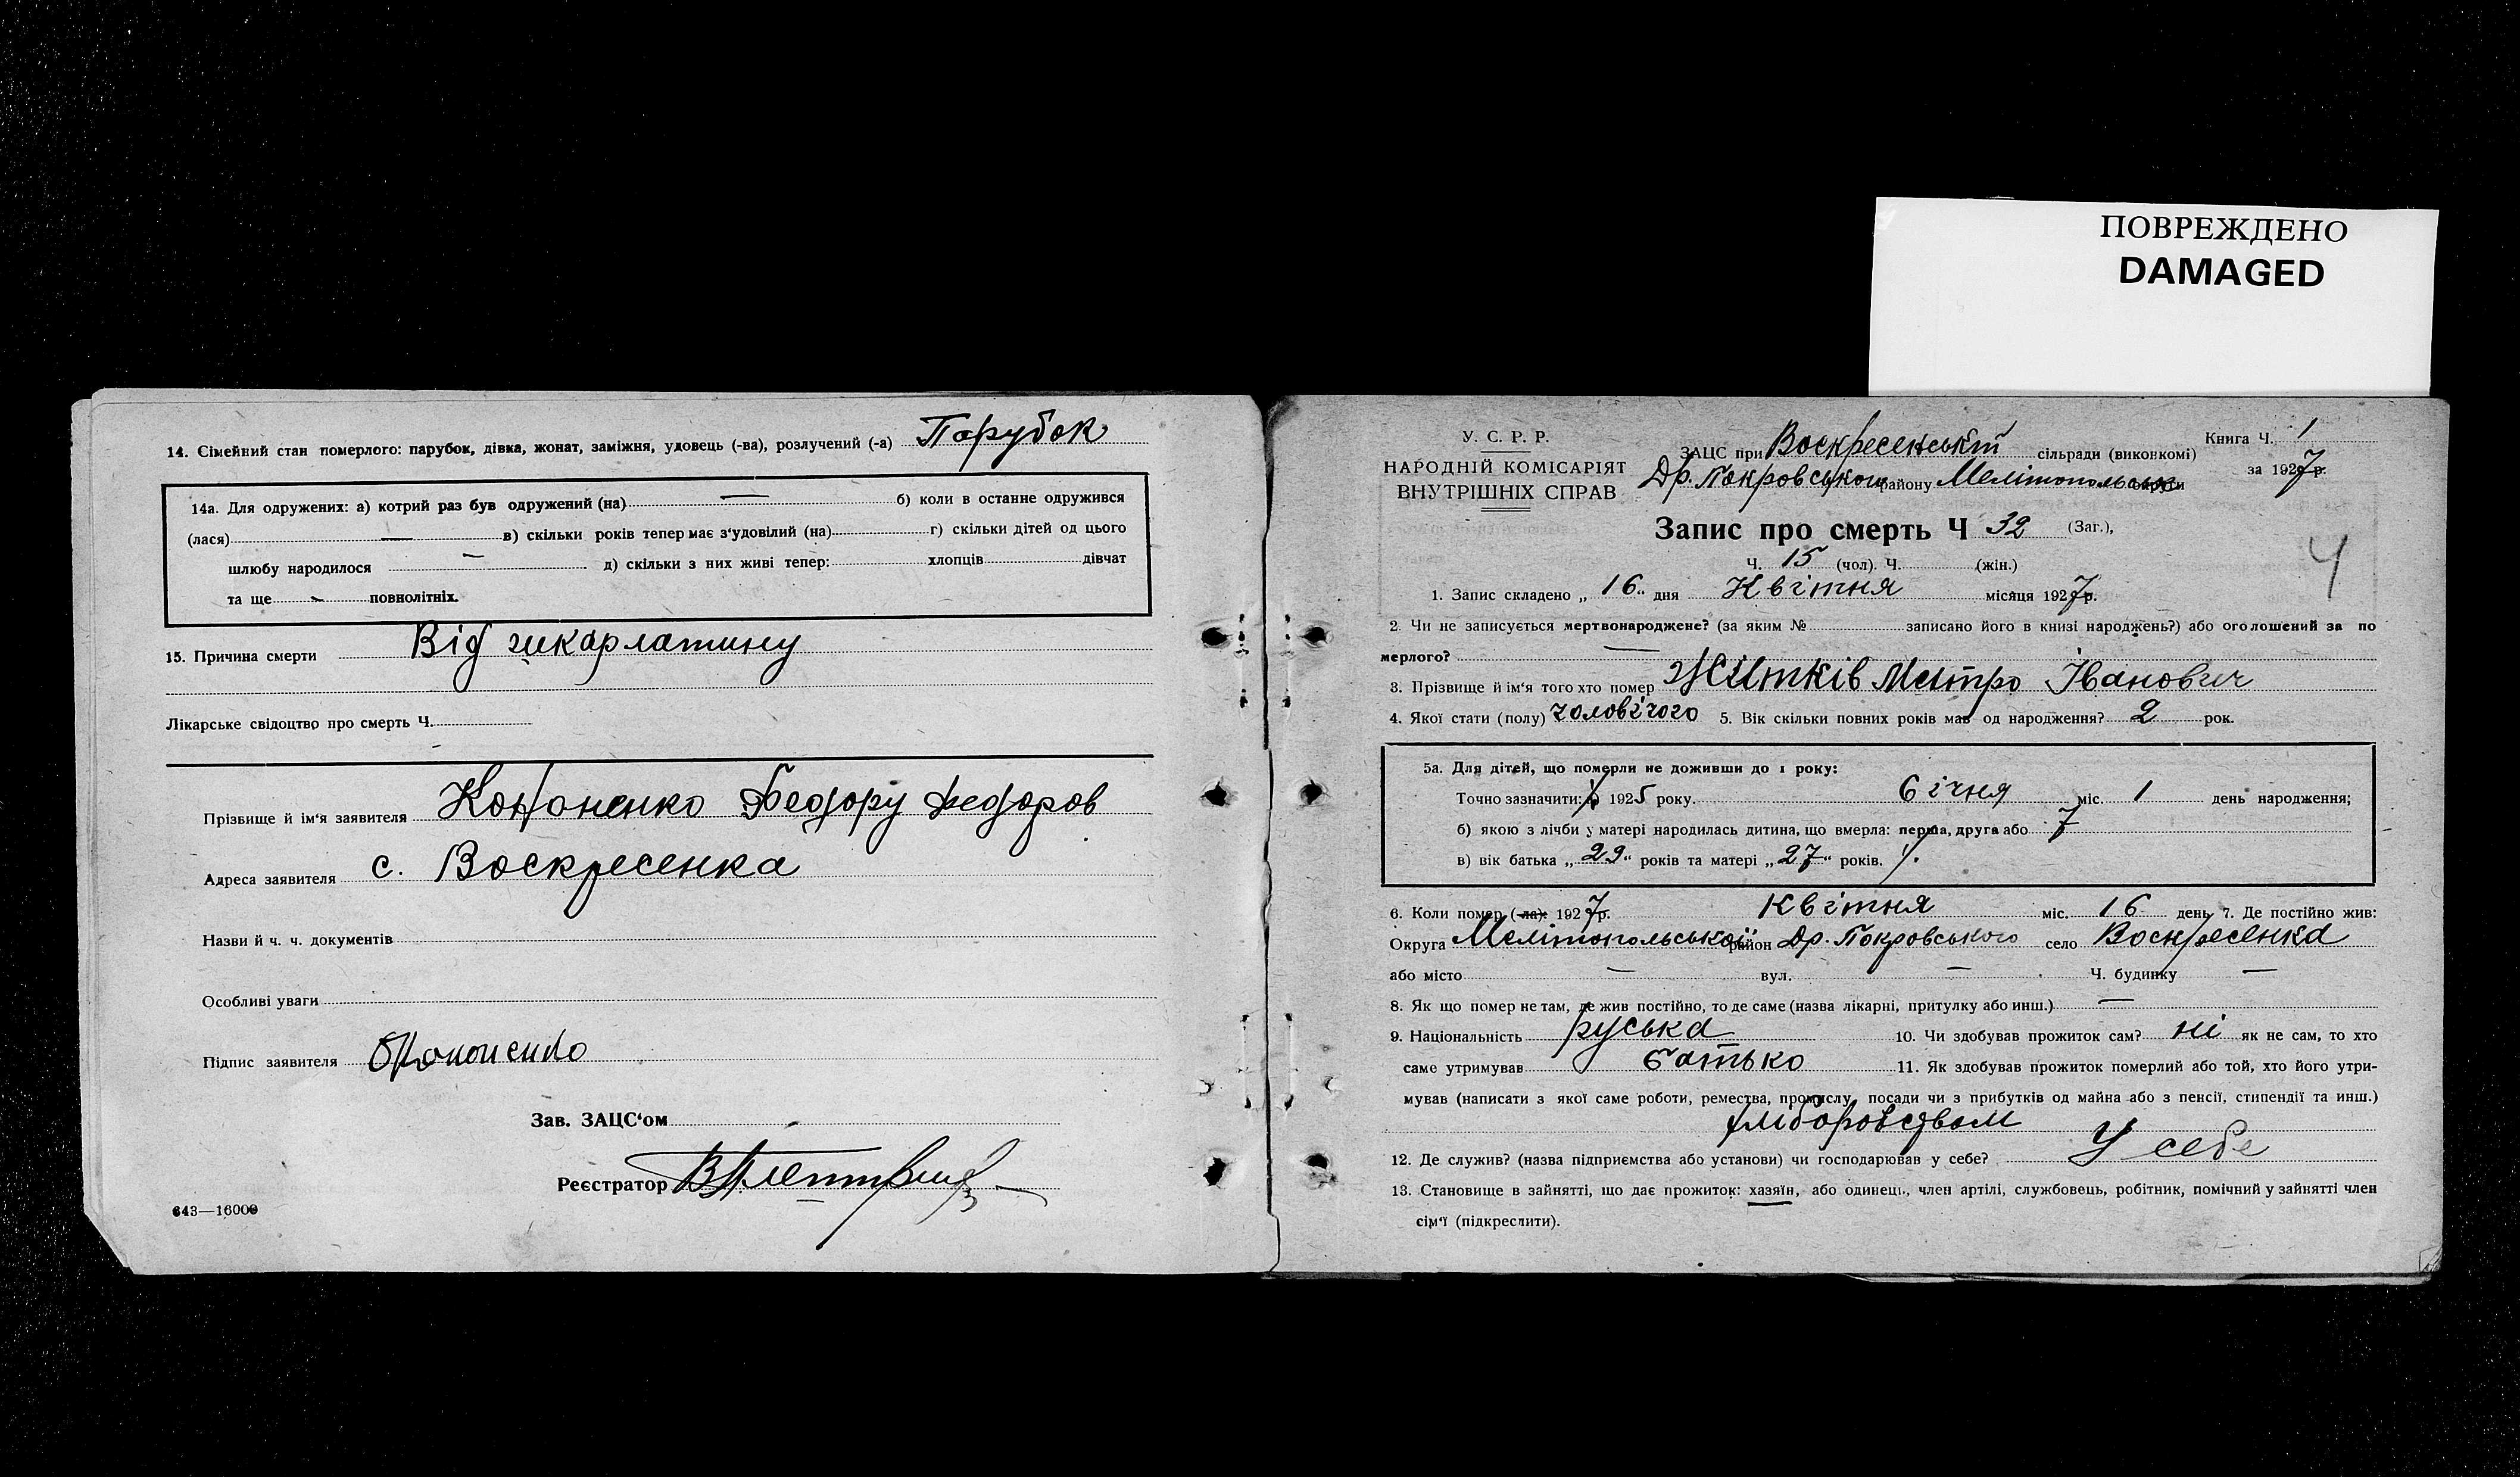 ПОВРЕЖДЕНО
DAMAGED
14. Сімейний стан померлого: парубок, дівка, жонат, заміжня, удовець (-ва), розлучений (-а) Парубок
14а. Для одружених: а) котрий раз був одружений (на) — б) коли в останне одружився
(лася) — в) скільки років тепер має з'удовілий (на) г) скільки дітей од цього
шлюбу народилося — д) скільки з них живі тепер: хлопців дівчат
та ще — повнолітніх.
15. Причина смерти Від шкарлатину
Лікарське свідоцтво про смерть Ч.
Прізвище й ім'я заявителя Кононенко Федору Федоров
Адреса заявителя с. Воскресенка
Назви й ч. ч. документів
Особливі уваги
Підпис заявителя Кононенко
Зав. ЗАЦС'ом
Реєстратор
643—16000
У. С. Р. Р.
НАРОДНІЙ КОМІСАРІЯТ
ВНУТРІШНІХ СПРАВ
ЗАЦС при Воскресенській сільради (виконкомі)
Др. Покровського району Мелітопольськ округи
Книга Ч. 1
за 1927 р.
Запис про смерть Ч 32 (Заг.),
Ч. 15 (чол). Ч. (жін.)
4
1. Запис складено „ 16 " дня Квітня місяця 1927 р.
2. Чи не записується мертвонароджене? (за яким № записано його в книзі народжень?) або оголошений за по
мерлого? —
3. Прізвище й ім'я того хто помер Житків Митро Іванович
4. Якої стати (полу) чоловічого 5. Вік скільки повних років мав од народження? 2 рок.
5а. Для дітей, що померли не доживши до 1 року:
Точно зазначити: а) 1925 року. Січня міс. 1 день народження;
б) якою з лічби у матері народилась дитина, що вмерла: перша, друга або 7
в) вік батька „ 29 " років та матері „ 27 " років.
6. Коли помер (-ла): 1927 р. Квітня міс. 16 день 7. Де постійно жив:
Округа Мелітопольської район Др. Покровського село Воскресенка
або місто — вул. — Ч. будинку —
8. Як що помер не там, де жив постійно, то де саме (назва лікарні, притулку або инш.) —
9. Національність руська 10. Чи здобував прожиток сам? ні як не сам, то хто
саме утримував батько 11. Як здобував прожиток померлий або той, хто його утри-
мував (написати з якої саме роботи, ремества, промислу, посади чи з прибутків од майна або з пенсії, стипендії та инш.)
12. Де служив? (назва підприємства або установи) чи господарював у себе? У себе
13. Становище в зайнятті, що дає прожиток: хазяїн, або одинець, член артілі, службовець, робітник, помічний у зайнятті член
сім'ї (підкреслити).